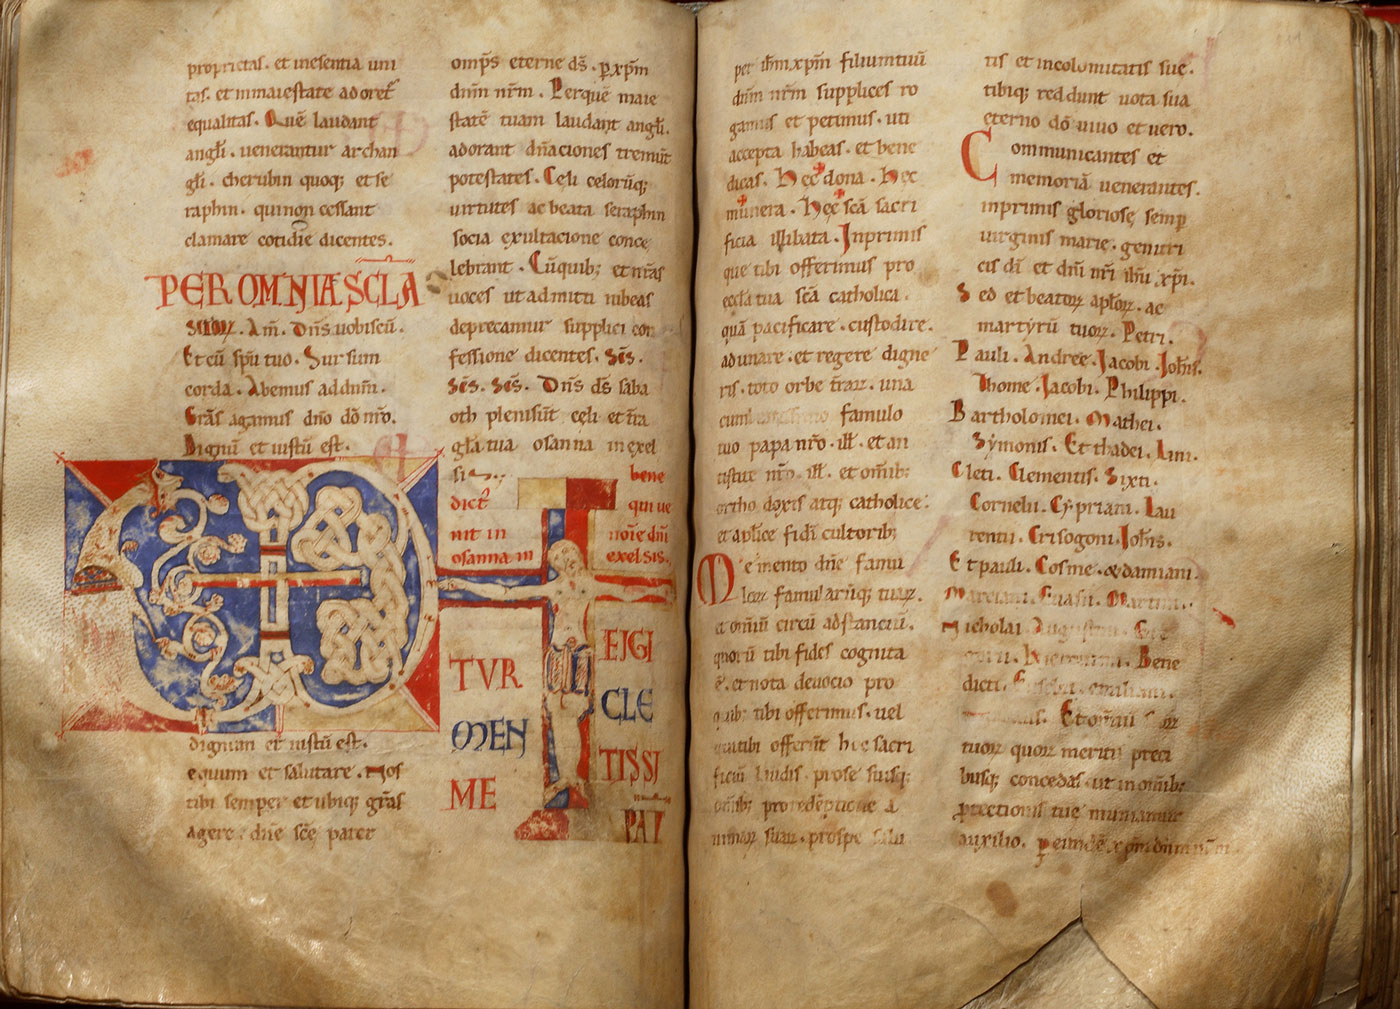 proprietas. et inesentia uni
tas. et inmaiestate adoret᷑
equalitas. Quē laudant
angl̄i. uenerantur archan
gl̄i. cherubin quoq; et se
raphin. quinon cessant
clamare cotidie dicentes.
PER OMNIA ESCLA
Am̄. Dn̄s uobiscū.
Et cū sp̄u tuo. Sursum
corda. Abemus addnm̄.
Gr̄as agamus dn̄o dō nr̄o.
Dignū et iustū est.
dignum et iustū est.
equum et salutare. Nos
tibi semper et ubiq; gr̄as
agere. dn̄e sc̄e pater
omp̄s eterne ds̄. p xp̄m
dn̄m nr̄m. Perquē maie
statē tuam laudant angl̄i.
adorant dn̄aciones tremūt
potestates. Cęli celorūq;
uirtutes ac beata seraphin
socia exultacione conce
lebrant. Cūquib; et nr̄as
uoces ut admitti iubeas
deprecamur supplici con
fessione dicentes. Sc̄s.
Sc̄s. Sc̄s. Dn̄s ds̄ saba
oth pleni sūt cęli et tr̄a
gl̄a tua osanna in excel
sis. bene
dict᷑ qui ue
nit in noīe dn̄i
osanna in excelsis.
TE IGI
TVR CLE
MEN TISSI
ME PAT̄
per ih̄m xp̄m filium tuū
dn̄m nr̄m supplices ro
gamus et petimus. uti
accepta habeas. et bene
dicas. Hęc dona. Hęc
munera. Hęc sc̄a sacri
ficia illibata. Inprimis
que tibi offerimus pro
ecclā tua sc̄a catholica.
quā pacificare. custodire.
adunare. et regere digne
ris. toto orbe tr̄arꝝ. una
cum famulo
tuo papa nr̄o. ill̄. et an
tistite nr̄o. ill̄. et om̄ib;
ortho doxis atq; catholice.
et aplīce fidī cultorib;
Memento dn̄e famu
lorꝝ famularūq; tuarꝝ.
et om̄iū circū adstanciū.
quorū tibi fides cognita
ē. et nota deuocio pro
quib; tibi offerimus. uel
quitibi offerūt hoc sacri
ficiū laudis. pro se suisq;
om̄ib; pro redēptione a
nimarꝝ suarꝝ. pro spe salu
tis et incolomitatis sue.
tibiq; reddunt uota sua
eterno dō uiuo et uero.
Communicantes et
memoriā uenerantes.
inprimis gloriose semp̄
uirginis marie. genitri
cis dī et dn̄i nr̄i ih̄u xp̄i.
Sed et beatorꝝ aplōrꝝ. ac
martyrū tuorꝝ. Petri.
Pauli. Andree. Jacobi. Joh̄is.
Thome. Jacobi. Philippi.
Bartholomei. Mathei.
Symonis. Et thadei. Lini.
Cleti. Clementis. Sixti.
Cornelii. Cypriani. Lau
rentii. Crisogoni. Joh̄is.
Et pauli. Cosme. & damiani.
Marciani. Martini.
Nicholai. Augustini. Gre
gorii. Bene
dicti. emiliani.
Et om̄iū
tuorꝝ quorꝝ meritis preci
busq; concedas. ut in om̄ib;
ꝓtectionis tue muniamur
auxilio. ꝑ eundē xp̄m dn̄m nr̄m.